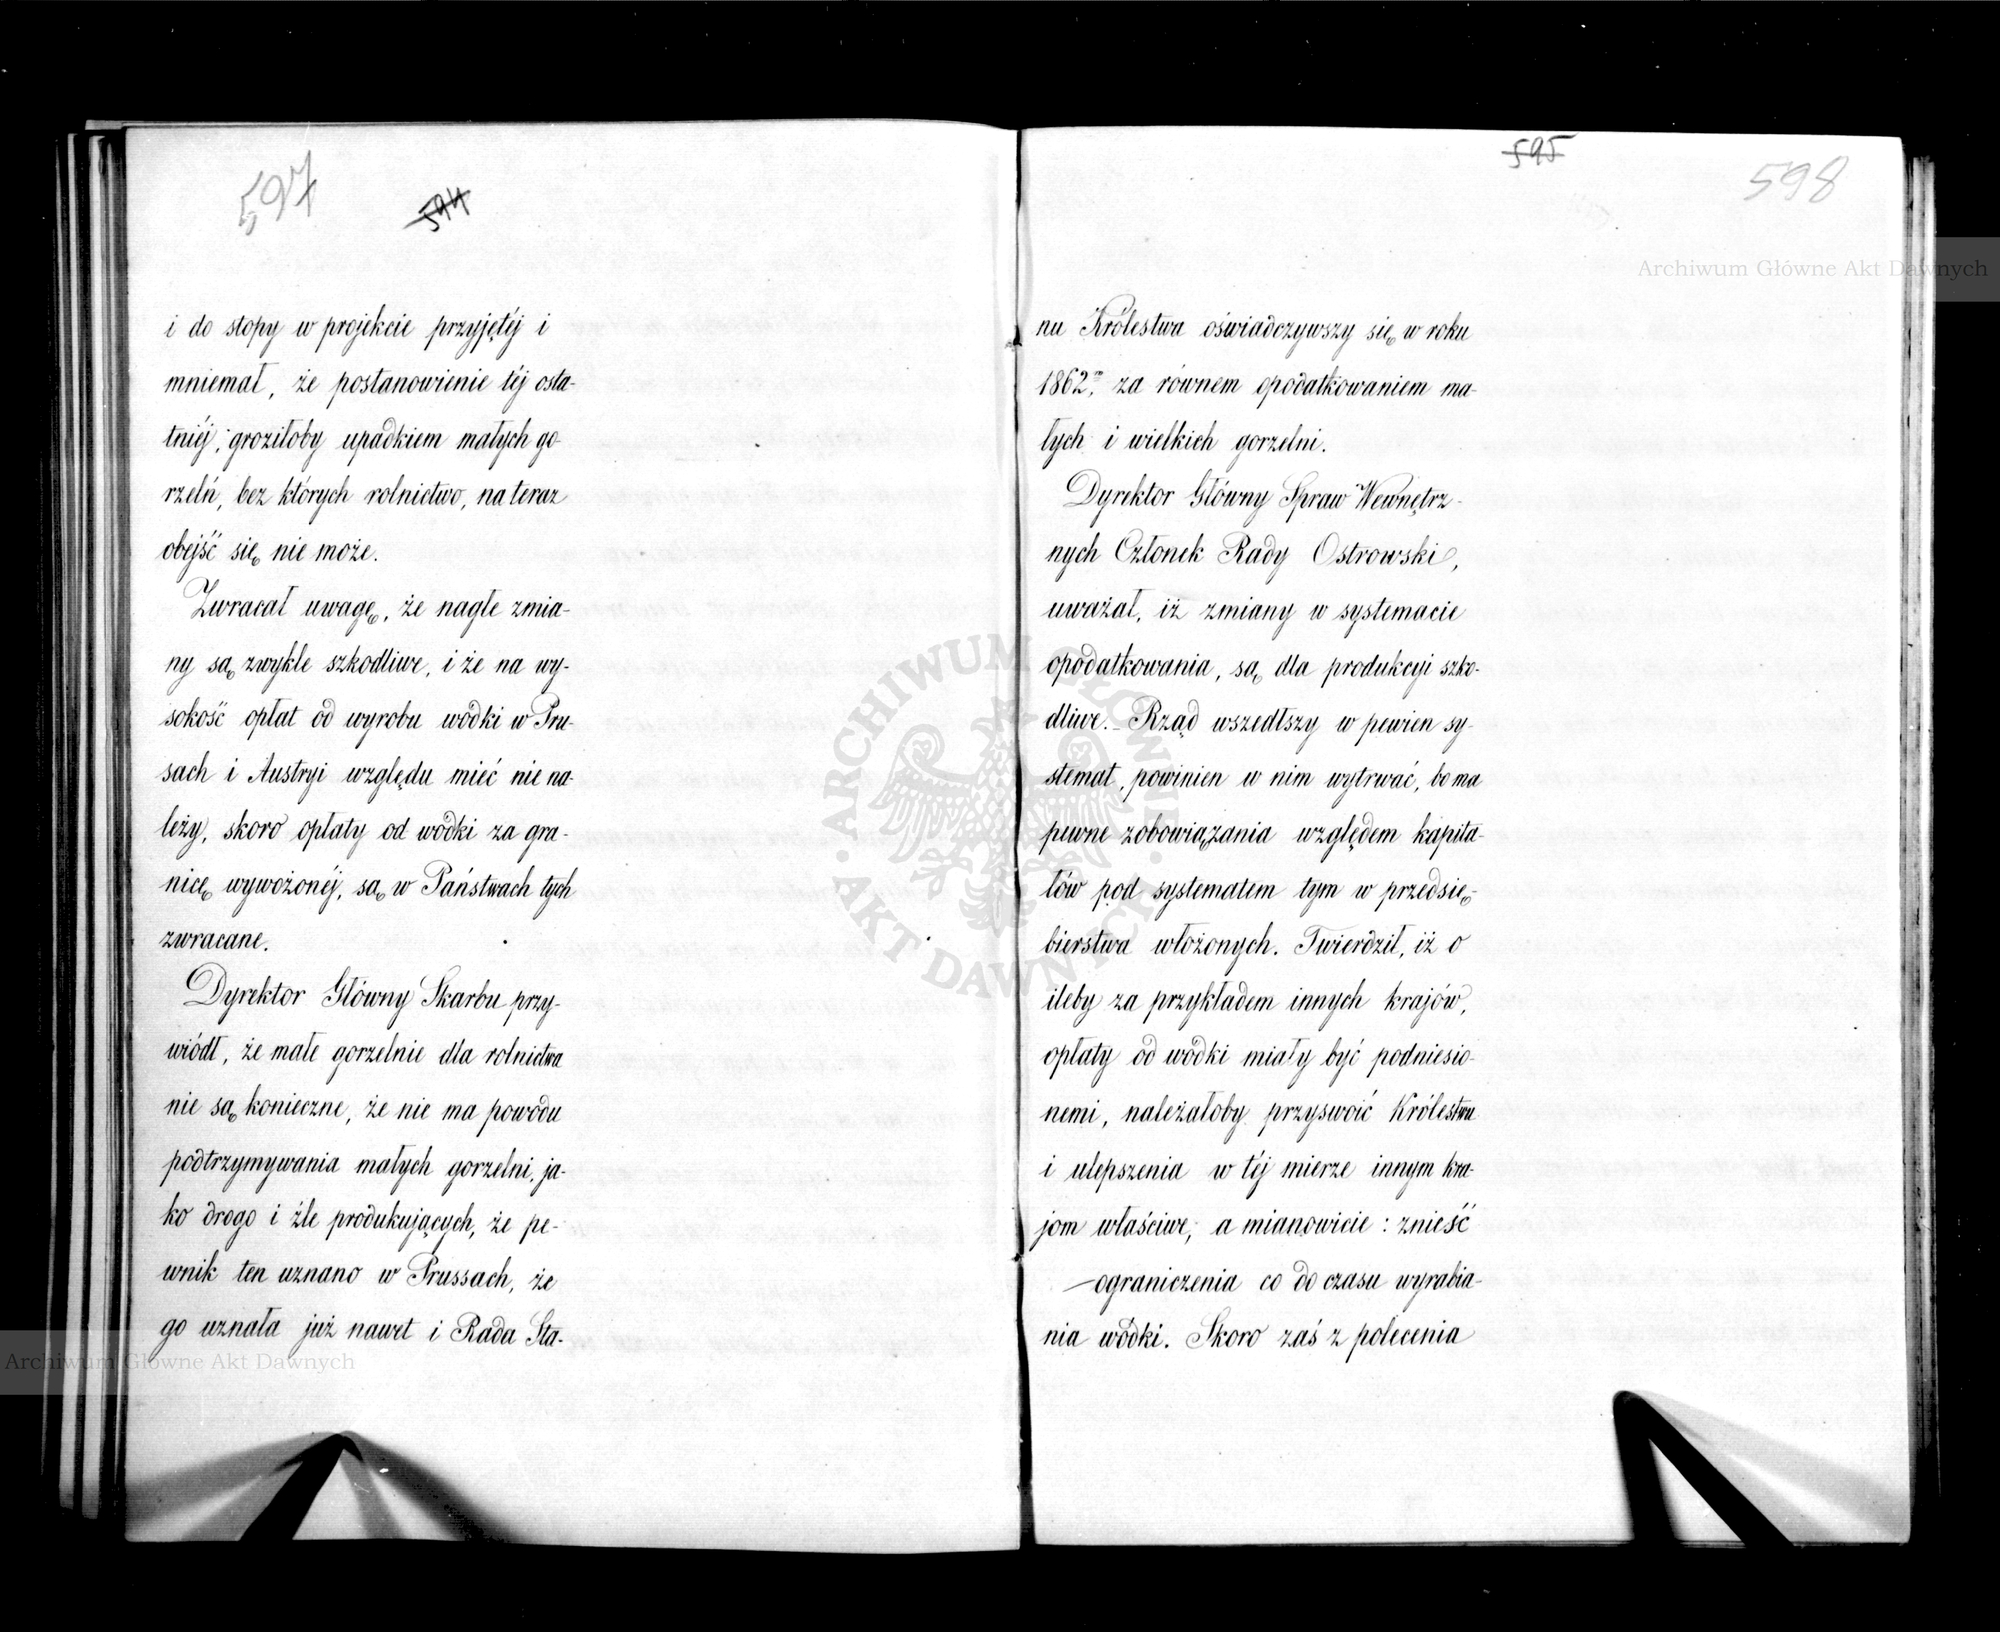 597
594
i do stopy w projekcie przyjętéj i
mniemał, że postanowienie téj osta-
tniéj, groziłoby upadkiem małych go-
rzelń, bez których rolnictwo, na teraz
obejść się nie może.
Zwracał uwagę, że nagłe zmia-
ny są zwykle szkodliwe, i że na wy-
sokość opłat od wyrobu wódki w Pru-
sach i Austryi względu mieć nie na-
leży, skoro opłaty od wódki za gra-
nicę wywożonéj, są w Państwach tych
zwracane.
Dyrektor Główny Skarbu przy-
wiódł, że małe gorzelnie dla rolnictwa
nie są konieczne, że nie ma powodu
podtrzymywania małych gorzelni, ja-
ko drogo i źle produkujących, że pe-
wnik ten uznano w Prussach, że
go uznała już nawet i Rada Sta-
595
598
nu Królestwa oświadczywszy się w roku
1862, za równem opodatkowaniem ma-
łych i wielkich gorzelni.
Dyrektor Główny Spraw Wewnętrz-
nych Członek Rady Ostrowski,
uważał, iż zmiany w systemacie
opodatkowania, są dla produkcyi szko-
dliwe. - Rząd wszedłszy w pewien sy-
stemat, powinien w nim wytrwać, bo ma
pewne zobowiązania względem kapita-
łów pod systematem tym w przedsię-
bierstwa włożonych. Twierdził, iż o
ileby za przykładem innych krajów,
opłaty od wódki miały być podniesio-
nemi, należałoby przyswoić Królestwu
i ulepszenia w téj mierze innym kra-
jom właściwe, a mianowicie: znieść
ograniczenia co do czasu wyrabia-
nia wódki. Skoro zaś z polecenia
Archiwum Główne Akt Dawnych
Archiwum Główne Akt Dawnych
ARCHIWUM GŁÓWNE AKT DAWNYCH